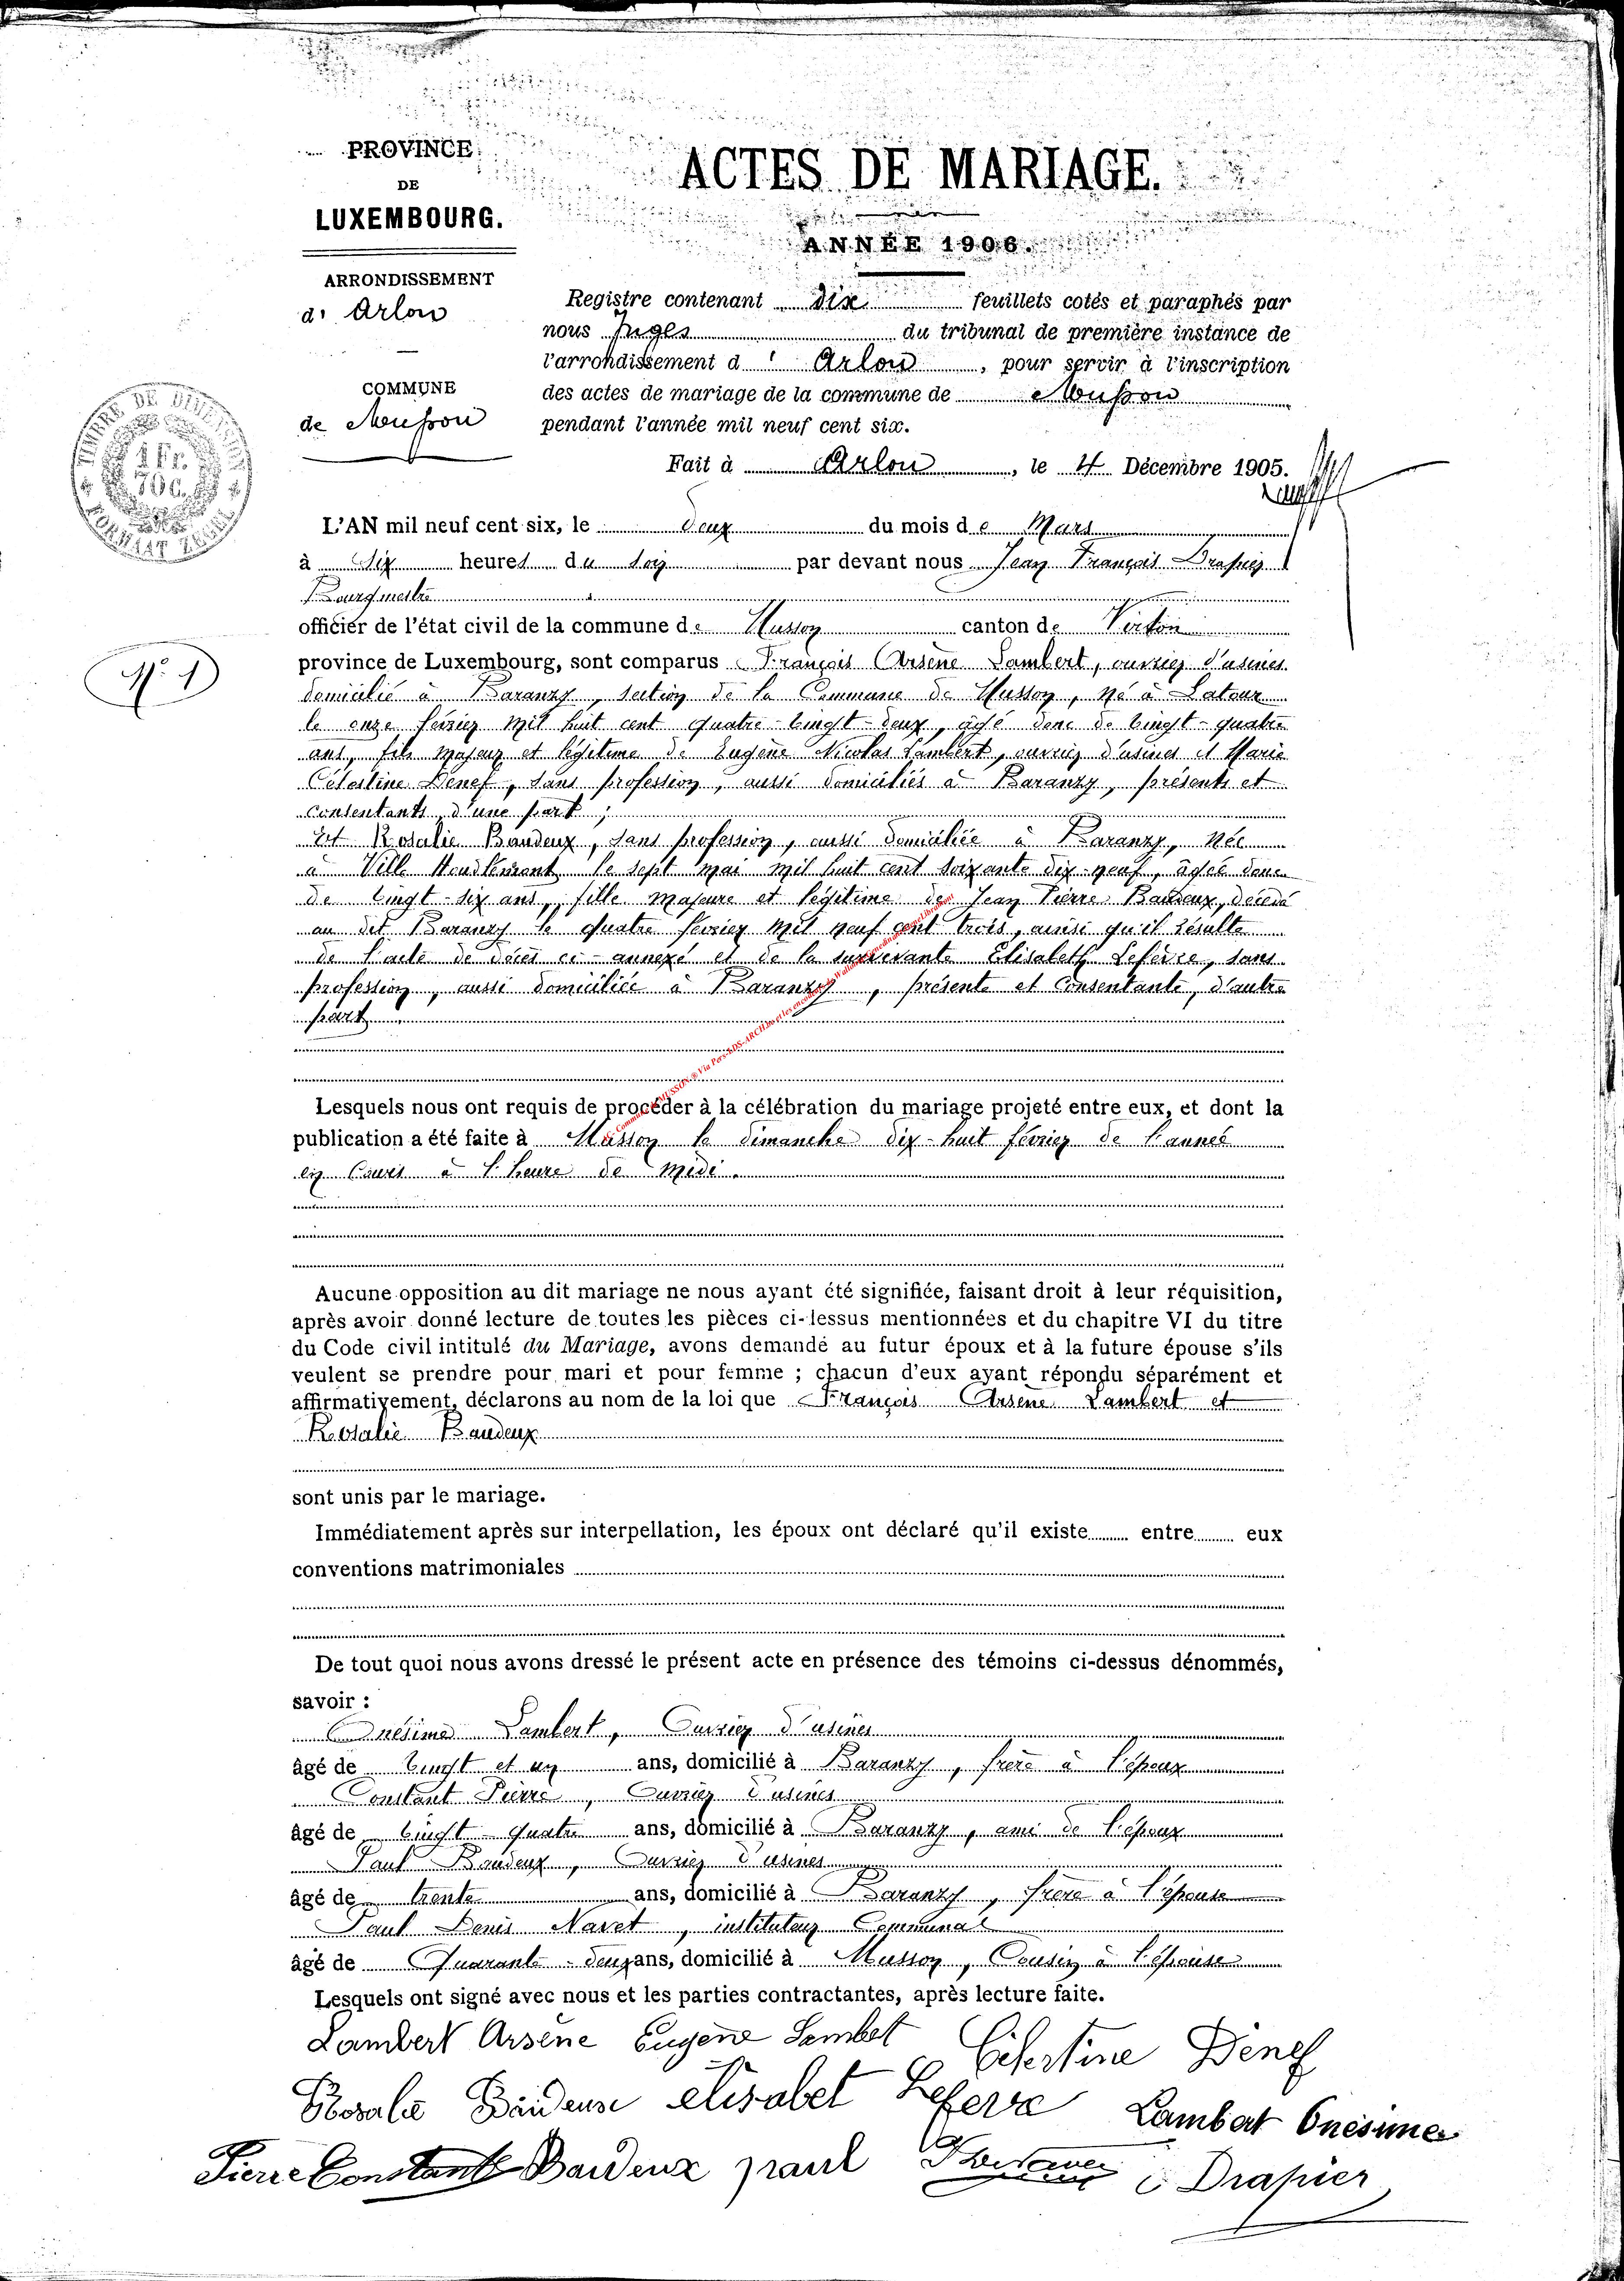 PROVINCE
DE
LUXEMBOURG.
ARRONDISSEMENT
d' Arlon
COMMUNE
de Musson
ACTES DE MARIAGE.
ANNÉE 1906.
Registre contenant dix feuillets cotés et paraphés par
nous Juges du tribunal de première instance de
l'arrondissement d ' Arlon, pour servir à l'inscription
des actes de mariage de la commune de Musson
pendant l'année mil neuf cent six.
Fait à Arlon, le 4 Décembre 1905.
TIMBRE DE DIMENSION
1 Fr.
70 C.
N° 1
L'AN mil neuf cent six, le deux du mois de Mars
à six heures du soir par devant nous Jean François Drapier
Bourgmestre
officier de l'état civil de la commune de Musson canton de Virton
province de Luxembourg, sont comparus François Arsène Lambert, ouvrier d'usines
domicilié à Baranzy, section de la Commune de Musson, né à Latour
le onze février mil huit cent quatre-vingt-deux, âgé donc de vingt-quatre
ans, fils majeur et légitime de Eugène Nicolas Lambert, ouvrier d'usines et Marie
Célestine Dénef, sans profession, aussi domiciliés à Baranzy, présents et
consentants d'une part ;
Et Rosalie Baudeux, sans profession, aussi domiciliée à Baranzy, née
à Ville Houdlémont le sept mai mil huit cent soixante dix-neuf, âgée donc
de vingt-six ans, fille majeure et légitime de Jean Pierre Baudeux, décédé
au dit Baranzy le quatre février mil neuf cent trois, ainsi qu'il résulte
de l'acte de décès ci-annexé et de la survivante Elisabeth Lefèvre, sans
profession, aussi domiciliée à Baranzy, présente et consentante, d'autre
part
Lesquels nous ont requis de procéder à la célébration du mariage projeté entre eux, et dont la
publication a été faite à Musson le dimanche dix-huit février de l'année
en cours à l'heure de midi.
Aucune opposition au dit mariage ne nous ayant été signifiée, faisant droit à leur réquisition,
après avoir donné lecture de toutes les pièces ci-dessus mentionnées et du chapitre VI du titre
du Code civil intitulé du Mariage, avons demandé au futur époux et à la future épouse s'ils
veulent se prendre pour mari et pour femme ; chacun d'eux ayant répondu séparément et
affirmativement, déclarons au nom de la loi que François Arsène Lambert et
Rosalie Baudeux
sont unis par le mariage.
Immédiatement après sur interpellation, les époux ont déclaré qu'il existe entre eux
conventions matrimoniales
De tout quoi nous avons dressé le présent acte en présence des témoins ci-dessus dénommés,
savoir :
Onésime Lambert, Ouvrier d'usines
âgé de vingt et un ans, domicilié à Baranzy, frère à l'époux
Constant Pierre, Ouvrier d'usines
âgé de vingt-quatre ans, domicilié à Baranzy, ami de l'époux
Paul Baudeux, Ouvrier d'usines
âgé de trente ans, domicilié à Baranzy, frère à l'épouse
Paul Denis Navet, instituteur Communal
âgé de Quarante-deux ans, domicilié à Musson, Cousin à l'épouse
Lesquels ont signé avec nous et les parties contractantes, après lecture faite.
Lambert Arsène Eugène Lambet Célestine Dénef
Rosalie Baudeux elisabet Lefevre Lambert Onésime
Pierre Constant Baudeux paul Drapier